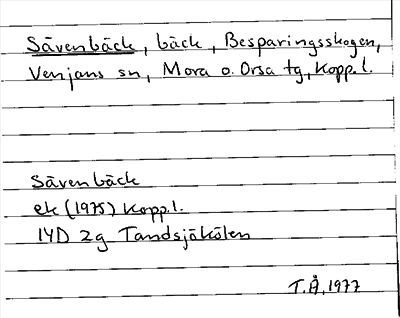 Sävenbäck, bäck, Besparingsskogen,
Venjans sn, Mora o. Orsa tg, Kopp.l.
Sävenbäck
ek (1975) Kopp.l.
14D 2g Tandsjökölen
T.Å, 1977